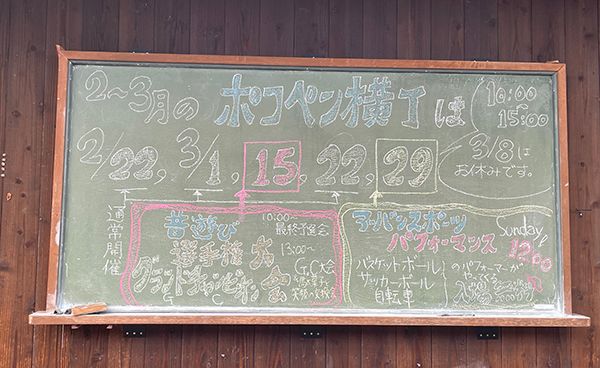 2〜3月の ポコペン横丁は 10:00〜15:00
2/22, 3/1, 15, 22, 29
3/8は
お休みです。
通常開催
昔遊び
選手権大会
グランドチャンピオン
G C
10:00〜
最終予選会
13:00〜
G.C大会
アーバンスポーツ
パフォーマンス
Sunday
12:00
バスケットボール
サッカーボール
自転車
のパフォーマーが
やってくる